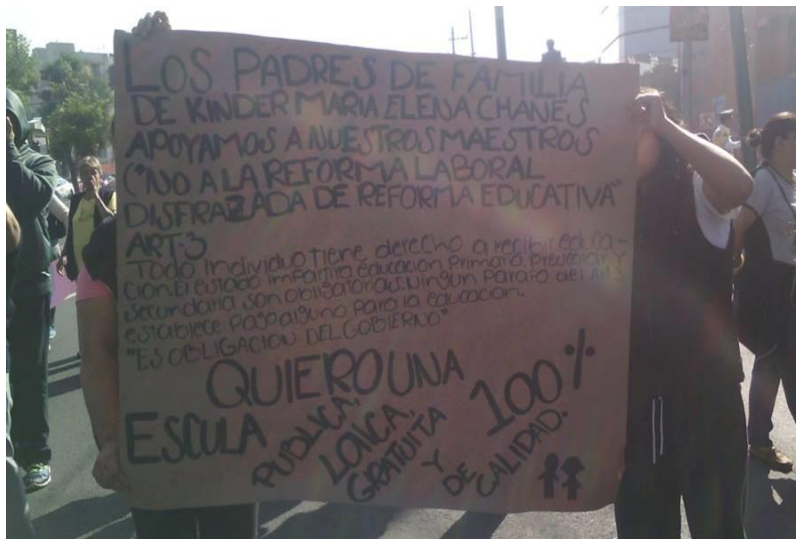 LOS PADRES DE FAMILIA
DE KINDER MARIA ELENA CHANES
APOYAMOS A NUESTROS MAESTROS
("NO A LA REFORMA LABORAL
DISFRAZADA DE REFORMA EDUCATIVA"
ART-3
Todo Individuo tiene derecho a recibir educa-
cion. El estado impartira educacion Primaria, Preescolar y
secundaria son obligatorias. Ningun Parafo del Art 3
establece Pago alguno Para la educacion.
"ES OBLIGACION DEL GOBIERNO"
QUIERO UNA
ESCULA PUBLICA, 100%
LAICA,
GRATUITA
Y DE CALIDAD.